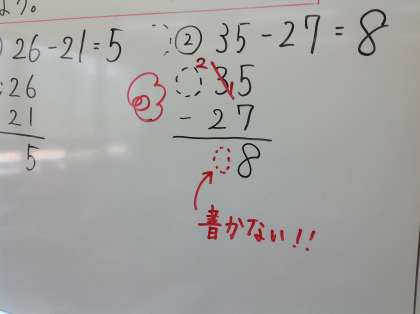 26-21=5
26
21
5
② 35-27=8
2
35
-27
8
書かない!!